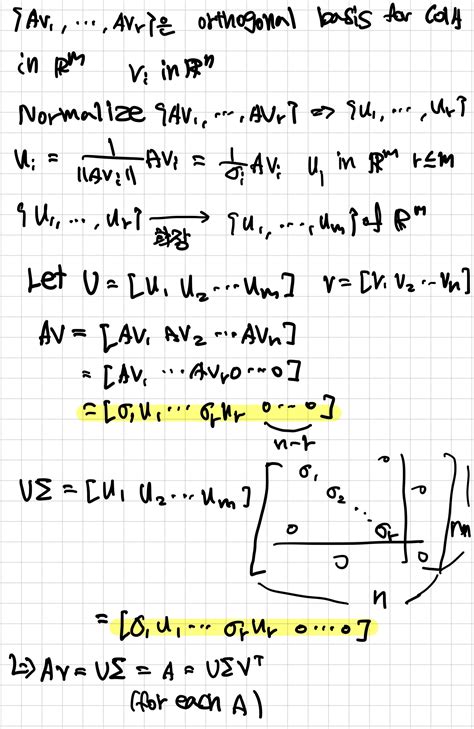 {Av₁, ⋯, Avᵣ}은 orthogonal basis for ColA
in ℝᵐ vᵢ in ℝⁿ
Normalize {Av₁, ⋯, Avᵣ} ⇒ {u₁, ⋯, uᵣ}
uᵢ = 1/‖Avᵢ‖ Avᵢ = 1/σᵢ Avᵢ u₁ in ℝᵐ r≤m
{u₁, ⋯, uᵣ} → 확장 {u₁, ⋯, uₘ} of ℝᵐ
Let U = [u₁ u₂ ⋯ uₘ] V = [v₁ v₂ ⋯ vₙ]
AV = [Av₁ Av₂ ⋯ Avₙ]
= [Av₁ ⋯ Avᵣ 0 ⋯ 0]
= [σ₁u₁ ⋯ σᵣuᵣ 0 ⋯ 0]
n-r
UΣ = [u₁ u₂ ⋯ uₘ] [σ₁ σ₂ ⋱ σᵣ 0 0 0 0 0] m
n
= [σ₁u₁ ⋯ σᵣuᵣ 0 ⋯ 0]
↳ AV = UΣ = A = UΣVᵀ
(for each A)